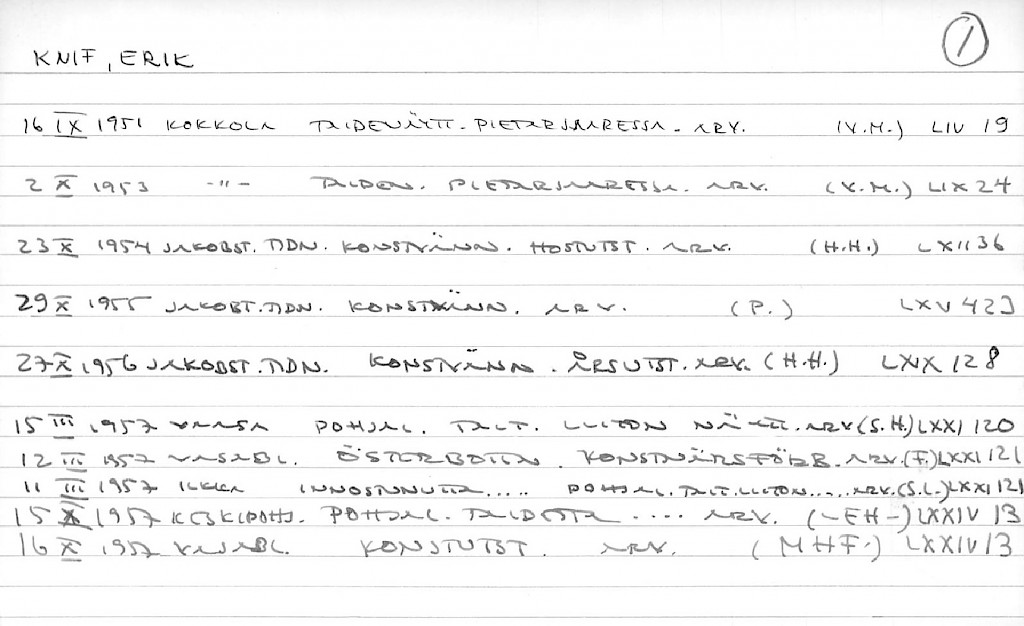 1
KNIF, ERIK
16 IX 1951 KOKKOLA TAIDENÄYTT. PIETARSAARESSA. ARV. (V.M.) LIV 19
2 X 1953 -"- TAIDEN. PIETARSAARESSA. ARV. (V.M.) LIX 24
23 X 1954 JAKOBST. TIDN. KONSTVÄNN. HÖSTUTST. ARV. (H.H.) LXII 36
29 X 1955 JAKOBT. TIDN. KONSTVÄNN. ARV. (P.) LXV 423
27 X 1956 JAKOBST. TIDN. KONSTVÄNN. ÅRSUTST. ARV. (H.H.) LXIX 128
15 III 1957 VAASA POHJAL. TAIT. LIITON NÄYTT. ARV (S.H.) LXXI 120
12 III 1957 VASABL. ÖSTERBOTTN. KONSTNÄRSFÖRB. ARV. (F.) LXXI 121
11 III 1957 ILKKA INNOSTUNUTTA..... POHJAL. TAIT. LIITON.... ARV. (S.L.) LXXI 121
15 X 1957 KESKIPOHJ. POHJAL. TAIDETTA .... ARV. (-EH-) LXXIV 13
16 X 1957 VASABL. KONSTUTST. ARV. (MHF.) LXXIV 13